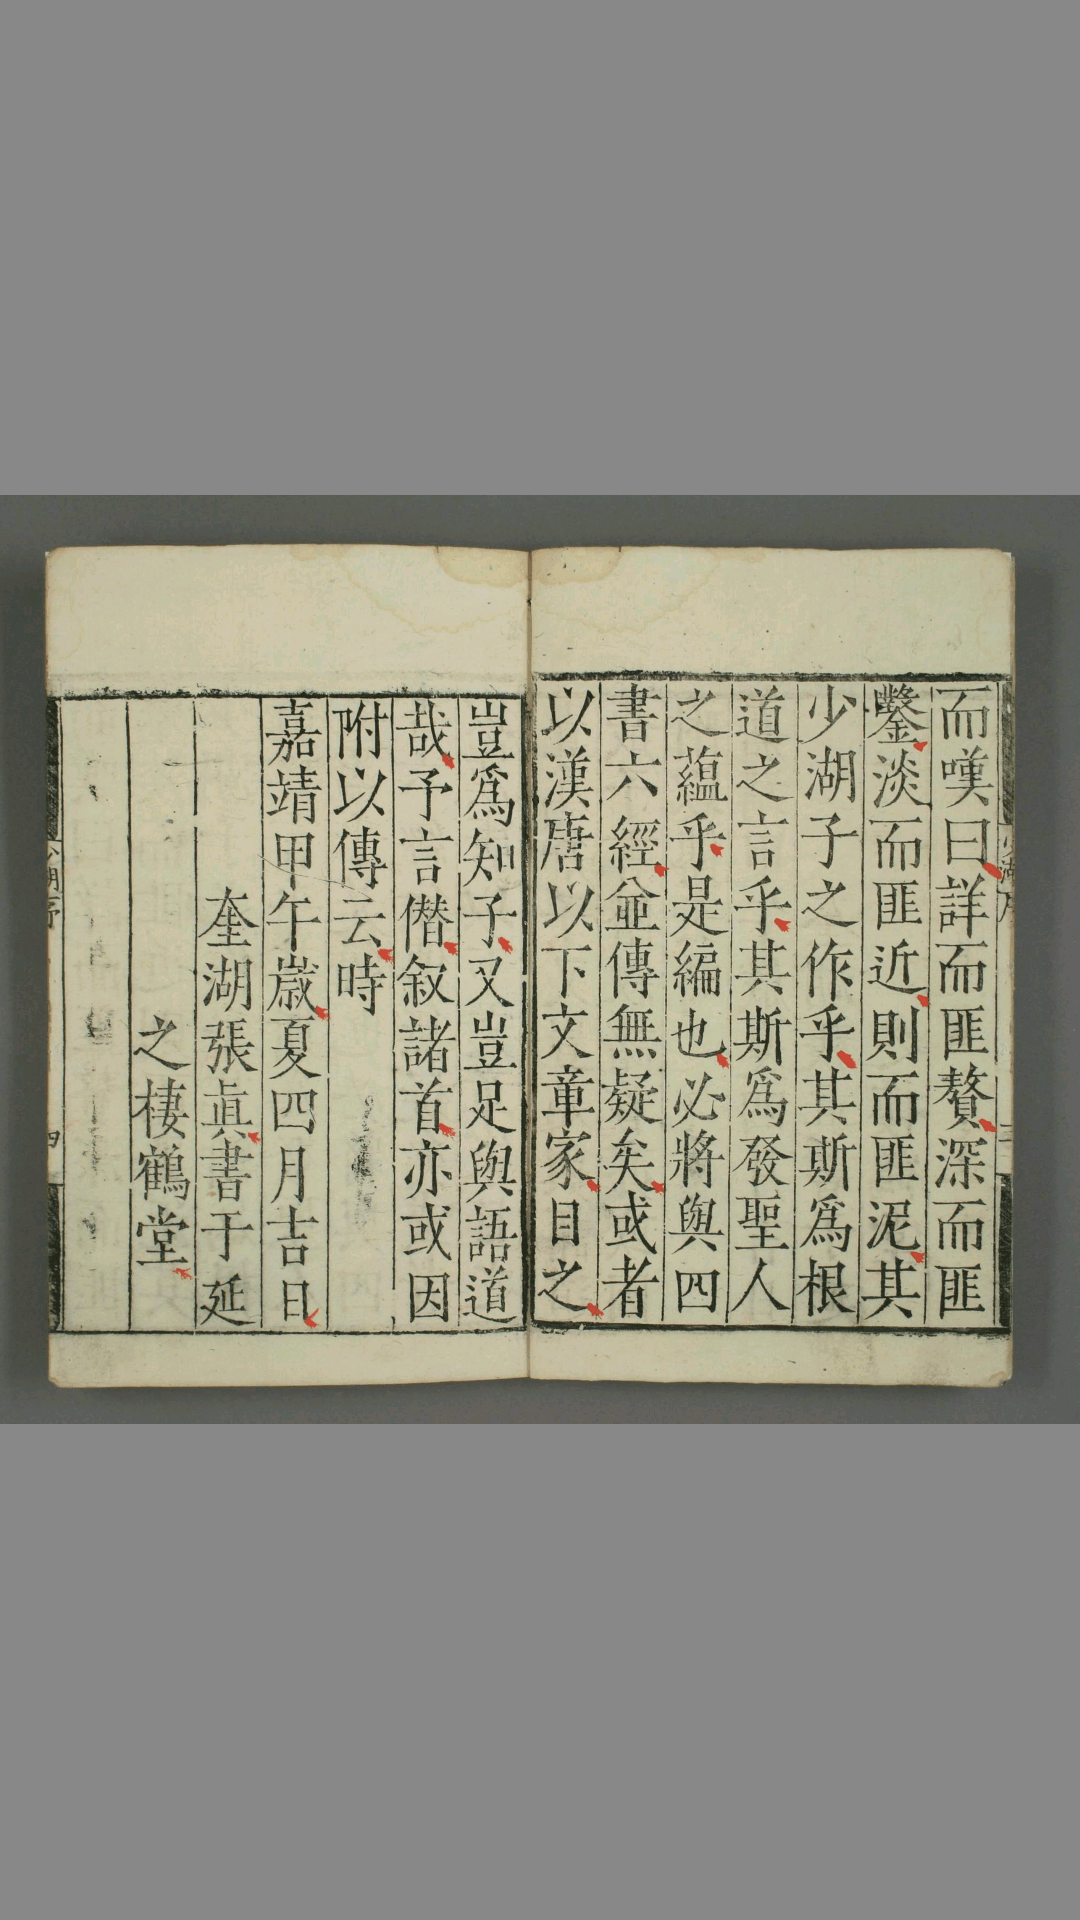 而嘆曰詳而匪贅深而匪
鑿淡而匪近則而匪泥其
少湖子之作乎其斯爲根
道之言乎其斯爲發聖人
之蘊乎是編也必將與四
書六經並傳無疑矣或者
以漢唐以下文章家目之
豈爲知子又豈足與語道
哉予言僣叙諸首亦或因
附以傳云時
嘉靖甲午嵗夏四月吉日
奎湖張眞書于延
之棲鶴堂
四